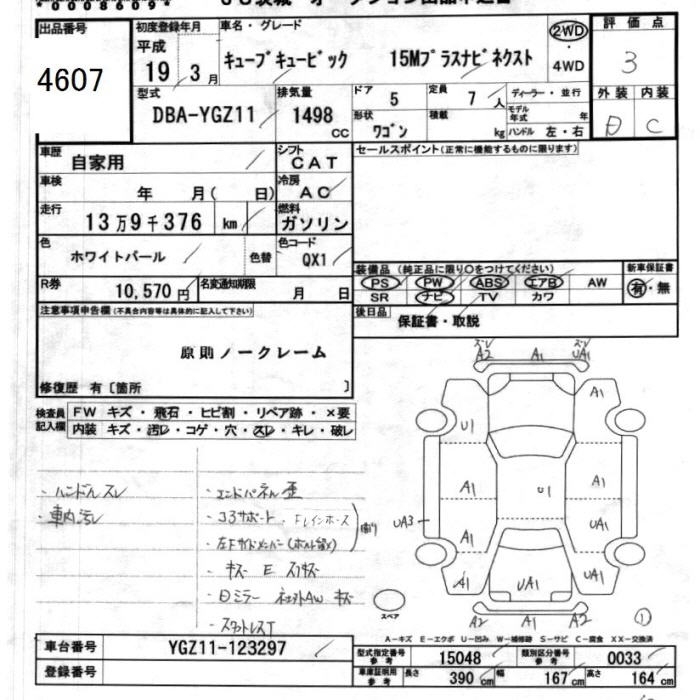 出品番号
4607
初度登録年月
平成
19年 3月
車名・グレード
キューブキュービック 15Mプラスナビネクスト
2WD
4WD
評価点
3
外装 内装
D C
型式
DBA-YGZ11
排気量
1498
cc
ドア
5
定員
7人
ディーラー・並行
モデル年式 年
形状
ワゴン
積載
kg
ハンドル 左・右
車歴
自家用
シフト
CAT
セールスポイント(正常に機能するものに限ります)
車検
年 月( 日)
冷房
AC
走行
13万9千376 km
燃料
ガソリン
色
ホワイトパール
色替
色コード
QX1
装備品 (純正品に限り○をつけてください)
新車保証書
PS PW ABS エアB AW
有・無
SR ナビ TV カワ
R券
10,570円
名変通知期限
月 日
後日品
保証書・取説
注意事項申告欄(不具合内容等は具体的に記入して下さい)
原則ノークレーム
修復歴 有〔箇所 〕
検査員記入欄
FW キズ・飛石・ヒビ割・リペア跡・×要
内装 キズ・汚レ・コゲ・穴・スレ・キレ・破レ
・ハンドルスレ
・車内汚レ
・エンドパネル歪
・コアサポート・FLインホース
・左Fサイドメンバー(ホルト留メ)
曲り
・キズ E スリキズ
・Dミラー 社外AW キズ
・スタットレスT
A2 A1 UA1
A1
U1
A1 U1 A1
UA3 A1 UA1
A1 UA1 UA1
A2 A1 A2
スペア
①
A-キズ E-エクボ U-凹み W-補修跡 S-サビ C-腐食 XX-交換済
車台番号
YGZ11-123297
登録番号
型式指定番号
参考
15048
類別区分番号
参考
0033
車庫証明用
参考
長さ 390cm 幅 167cm 高さ 164cm